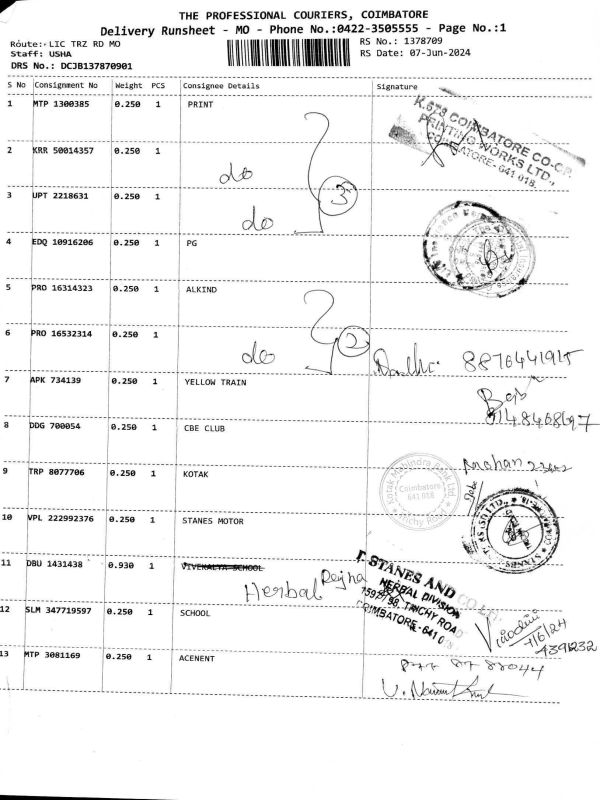 THE PROFESSIONAL COURIERS, COIMBATORE
Delivery Runsheet - MO - Phone No.:0422-3505555 - Page No.:1
Route: LIC TRZ RD MO
RS No.: 1378709
Staff: USHA
RS Date: 07-Jun-2024
DRS No.: DCJB137870901
S No Consignment No Weight PCS Consignee Details Signature
1 MTP 1300385 0.250 1 PRINT
K.679 COIMBATORE CO-OP.
PRINTING WORKS LTD.,
COIMBATORE-641 018.
2 KRR 50014357 0.250 1
do
3 UPT 2218631 0.250 1
do
3
4 EDQ 10916206 0.250 1 PG
5 PRO 16314323 0.250 1 ALKIND
6 PRO 16532314 0.250 1
do
2
8876441915
7 APK 734139 0.250 1 YELLOW TRAIN
8 DDG 700054 0.250 1 CBE CLUB
9 TRP 8077706 0.250 1 KOTAK
Kotak Mahindra Bank Ltd
Coimbatore
641 018
Trichy Road
Mohan
10 VPL 222992376 0.250 1 STANES MOTOR
11 DBU 1431438 0.930 1 VIVEKALYA SCHOOL
Herbal
T. STANES AND CO LTD.
HERBAL DIVISION
TRICHY ROAD
COIMBATORE-641 0
12 SLM 347719597 0.250 1 SCHOOL
4391232
13 MTP 3081169 0.250 1 ACENENT